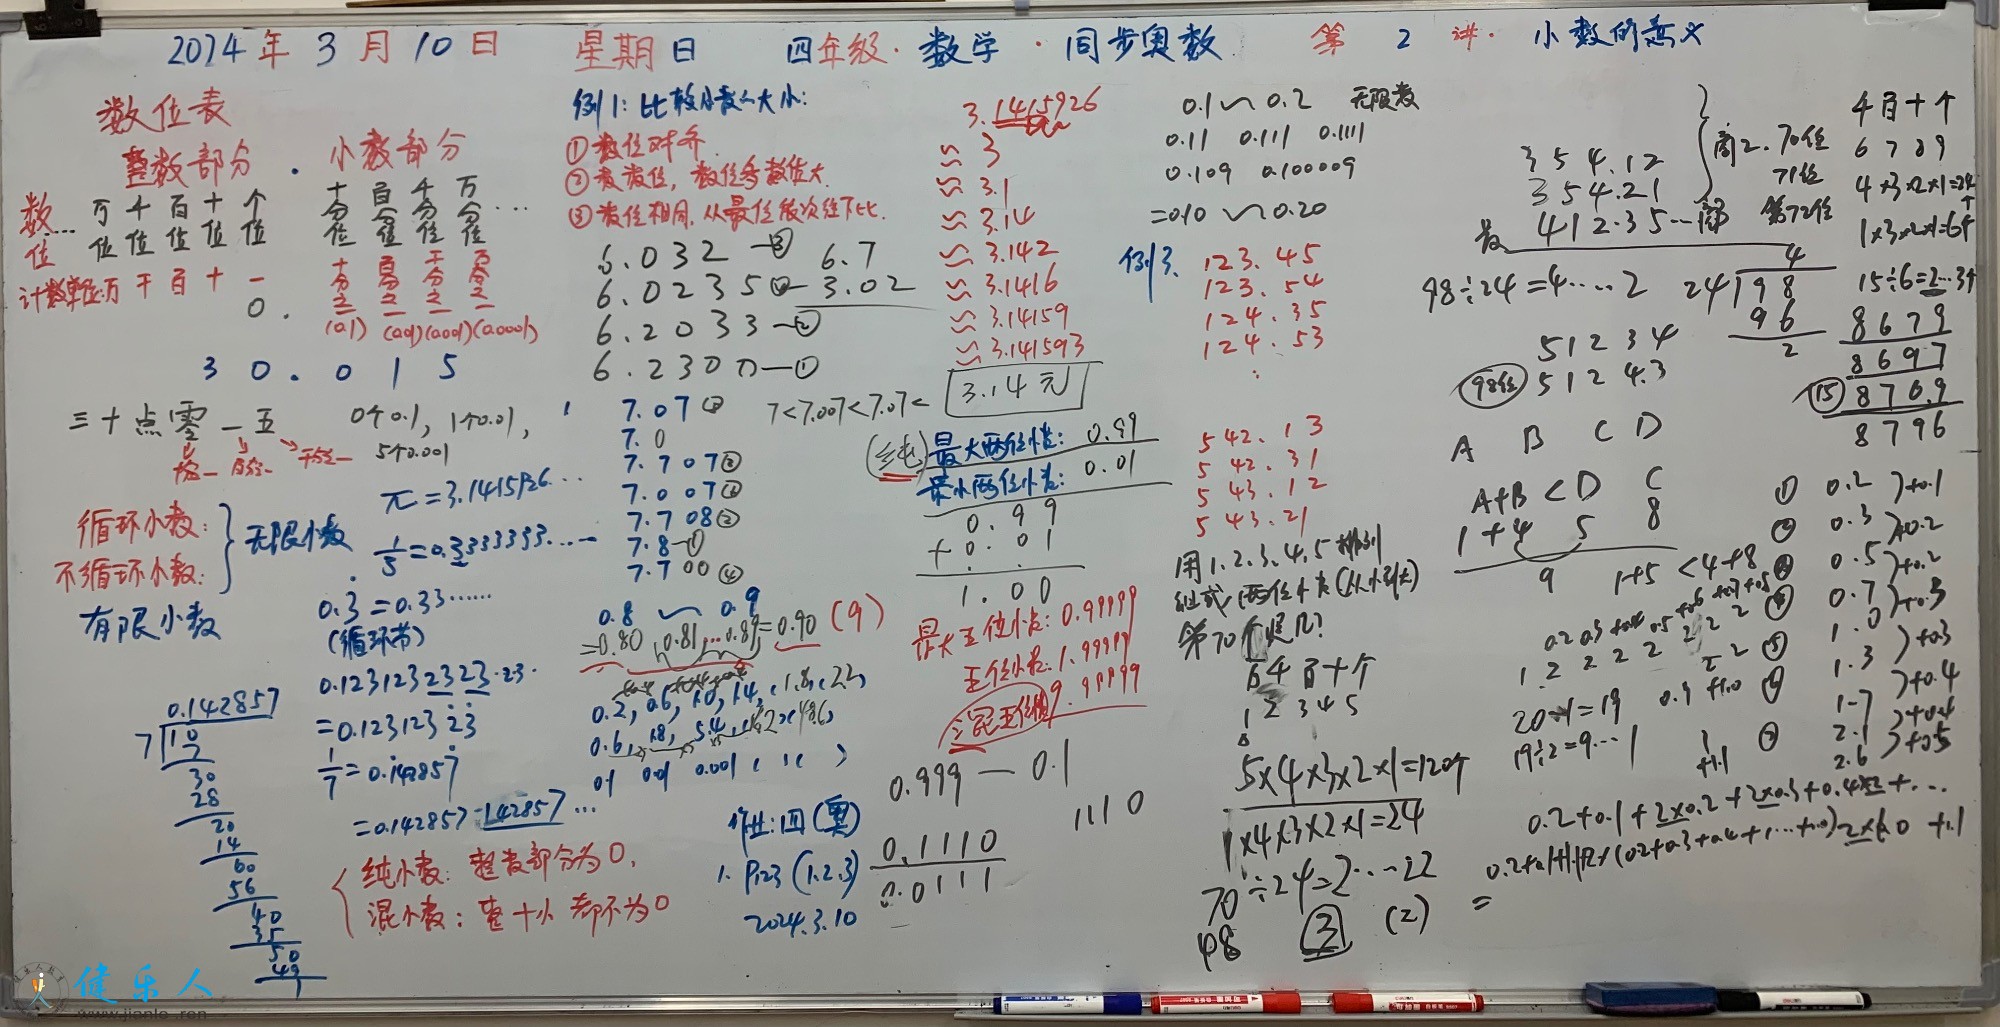 2024年3月10日 星期日 四年级·数学·同步奥数 第2讲·小数的意义
数位表
整数部分 . 小数部分
数位 … 万位 千位 百位 十位 个位 十分位 百分位 千分位 万分位 …
计数单位: 万 千 百 十 一 十分之一 百分之一 千分之一 万分之一
0. (0.1) (0.01) (0.001) (0.0001)
30.015
三十点零一五 0个0.1, 1个0.01,
5个0.001
循环小数:
不循环小数:
无限小数
有限小数
π=3.1415926...
0.3=0.33......
(循环节)
0.1231232323·23·
=0.12312323
1/7=0.142857
=0.142857 142857...
0.142857
7 10
7
30
28
20
14
60
56
40
35
50
49
1
纯小数: 整数部分为0,
混小数: 整+小 都不为0
例1: 比较小数的大小:
①数位对齐
③数位相同,从最高位依次往下比.
6.032—③ 6.7
6.0235④— 3.02
6.2033—②
6.2300—①
7.07
7.0
7.707③
7.007
7.708②
7.8—①
7.700④
7<7.007<7.07<
0.8 ～ 0.9
=0.80 0.81,...0.89=0.90 (9)
0.2, 0.6, 1.0, 1.4, 1.8, 2.2,
0.6, 1.8, 5.4, 16.2, 48.6,
0.1 0.01 0.001 ( )( )
作业: 四(奥)
1. P123 (1.2.3)
2024.3.10
3.1415926
≈3
≈3.1
≈3.14
≈3.142
≈3.1416
≈3.14159
≈3.141593
3.14元
(纯) 最大两位小数: 0.99
最小两位小数: 0.01
0.99
+0.01
1.00
最大五位小数: 0.99999
五位小数: 1.99999
9.99999
0.999 — 0.1
1110
0.1110
0.0111
0.1～0.2 无限数
0.11 0.111 0.1111
0.109 0.100009
=0.10 ～0.20
例3. 123.45
123.54
124.35
124.53
542.13
542.31
543.12
543.21
用1.2.3.4.5排列
组成两位小数(从小到大)
第70个是几?
万千百十个
1 2 3 4 5
5×4×3×2×1=120个
1×4×3×2×1=24
70÷24=2···22
98 ③ (2)
354.12
354.21
412.35
商2. 70位
71位
第72位
98÷24=4····2
4
24 98
96
2
51234
(98位) 5124.3
A B C D
A+B<D C
1+4 5 8
9 1+5<4+8
20-1=19
19÷2=9···1
千百十个
6789
4×3×2×1=24
1×3×2×1=6个
15÷6=2···3个
8679
8697
⑮ 8769
8796
① 0.2 )+0.1
0.3 )+0.2
0.5 )+0.2
0.7 )+0.3
1.0 )+0.3
1.3 )+0.4
1.7 )+0.4
2.1 )+0.5
2.6
0.2+0.1+2×0.2+2×0.3+0.4×2+...
=
健乐人
www.jianle.ren